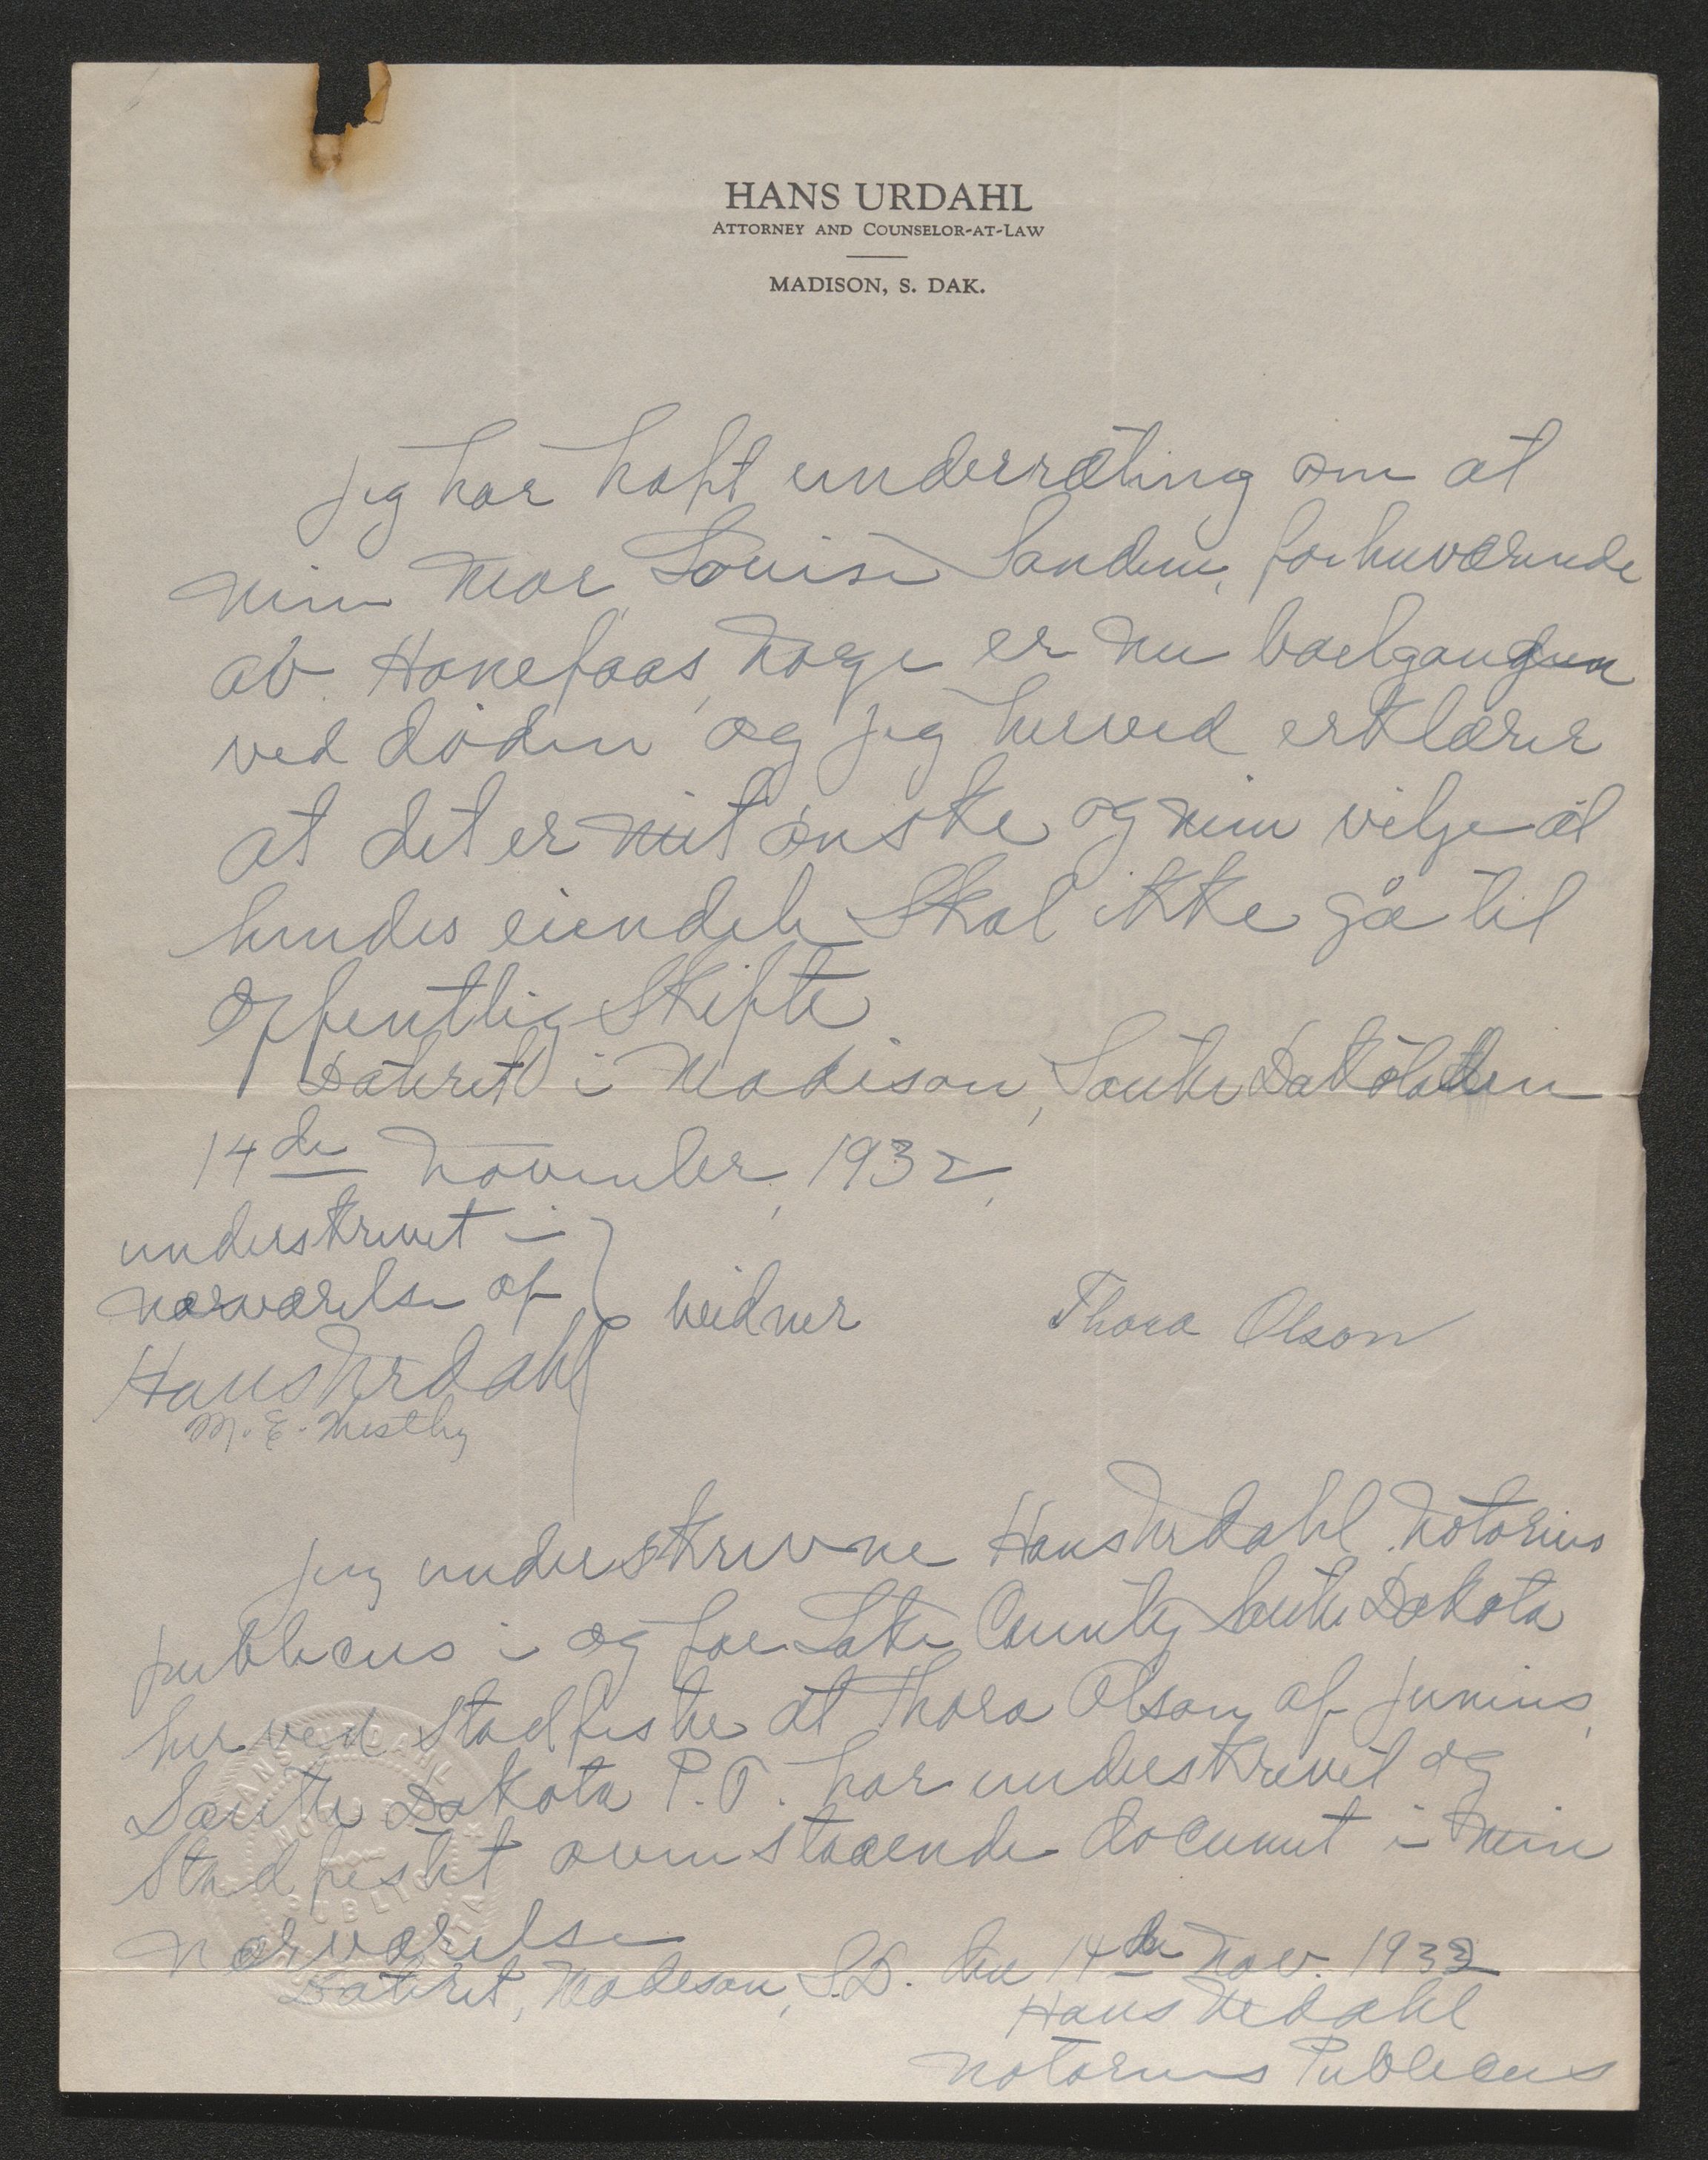 HANS URDAHL
ATTORNEY AND COUNSELOR-AT-LAW
MADISON, S. DAK.
Jeg har haft underræting om at
min mor, Louise Sanden, forhuværende
av Hønefoss, Norge er nu
ved døden og jeg herved erklærer
at det er mit ønske og min vilje at
hendes eiendele skal ikke gå til
offentlig skifte
Datert i Madison, South Dakota den
14de November, 1932,
underskrevet i
nærværelse af
Hans Urdahl
M. E. Westby
vidner
Thora Olson
Jeg underskrevne Hans Urdahl Notorius
publicus i og for Lake County South Dakota
herved stadfester at Thora Olson af Junius,
South Dakota P.O. har underskrevet og
stadfestet ovenstaaende document i min
nærværelse
Datert, Madison, S.D. den 14de Nov. 1932
Hans Urdahl
Notorius Publicus
HANS URDAHL
NOTARY
PUBLIC